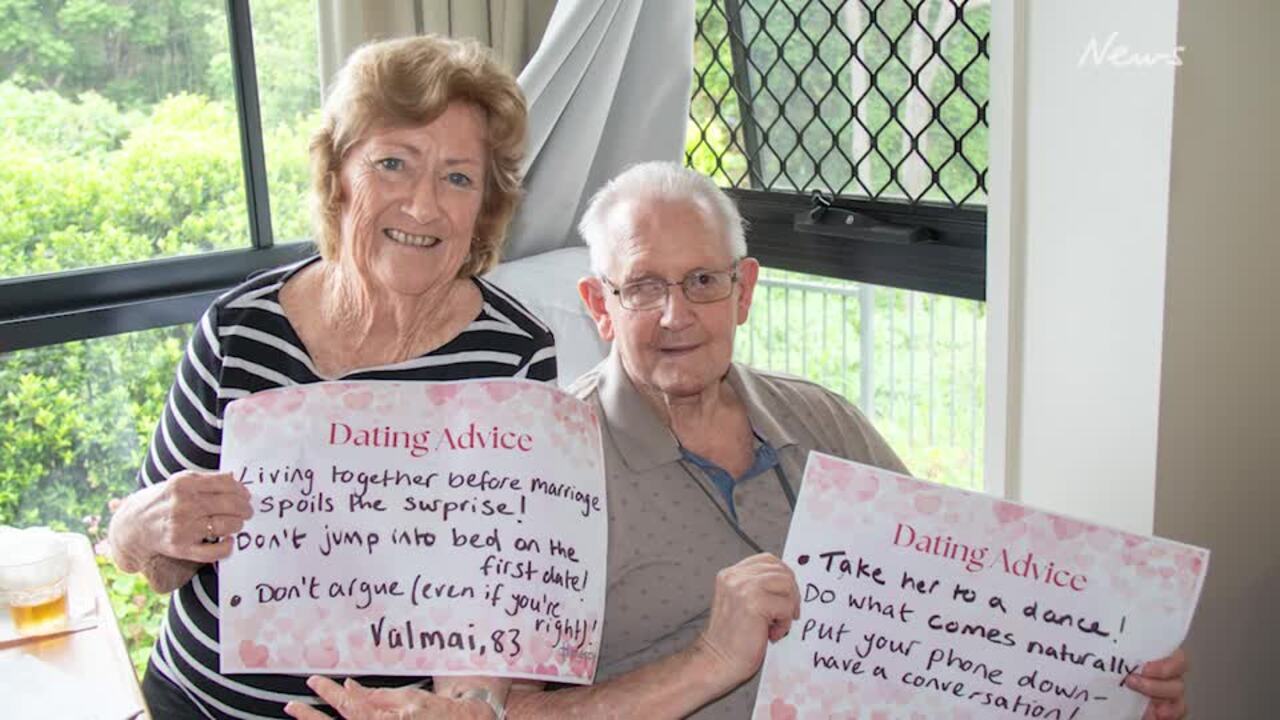 News
Dating Advice
Living together before marriage
spoils the surprise!
Don't jump into bed on the
first date!
• Don't argue (even if you're
right)!
Valmai, 83
Dating Advice
• Take her to a dance!
Do what comes naturally
Put your phone down-
have a conversation!